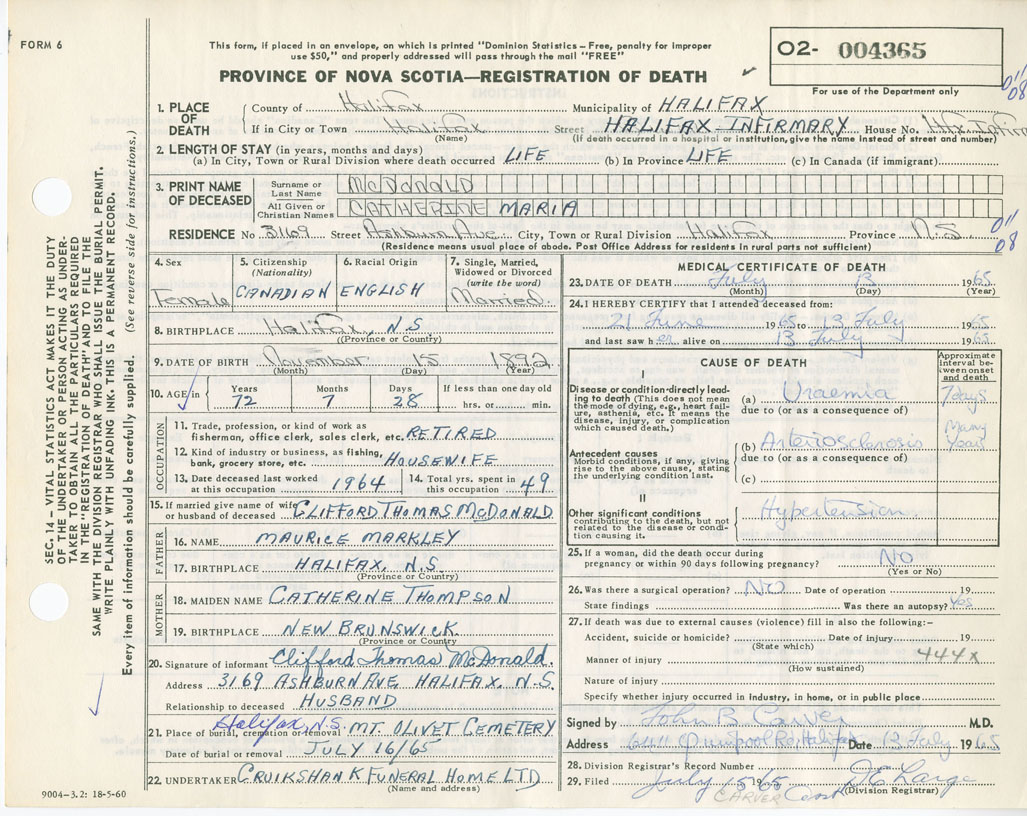 FORM 6
This form, if placed in an envelope, on which is printed "Dominion Statistics – Free, penalty for improper
use $50," and properly addressed will pass through the mail "FREE"
PROVINCE OF NOVA SCOTIA—REGISTRATION OF DEATH
O2- 004365
For use of the Department only
O"
08
1. PLACE OF DEATH
County of Halifax Municipality of HALIFAX
If in City or Town Halifax Street HALIFAX INFIRMARY House No.
(Name) (If death occurred in a hospital or institution, give the name instead of street and number)
2. LENGTH OF STAY (in years, months and days)
(a) In City, Town or Rural Division where death occurred LIFE (b) In Province LIFE (c) In Canada (if immigrant)
3. PRINT NAME OF DECEASED
Surname or Last Name McDONALD
All Given or Christian Names CATHERINE MARIA
RESIDENCE No 3169 Street Ashburn Ave. City, Town or Rural Division Halifax Province N.S.
(Residence means usual place of abode. Post Office Address for residents in rural parts not sufficient)
O"
08
4. Sex Female
5. Citizenship (Nationality) CANADIAN
6. Racial Origin ENGLISH
7. Single, Married, Widowed or Divorced (write the word) Married.
8. BIRTHPLACE Halifax, N.S.
(Province or Country)
9. DATE OF BIRTH November 15 1892
(Month) (Day) (Year)
10. AGE in Years 72 Months 7 Days 28 If less than one day old hrs. or min.
OCCUPATION
11. Trade, profession, or kind of work as
fisherman, office clerk, sales clerk, etc. RETIRED
12. Kind of industry or business, as fishing,
bank, grocery store, etc. HOUSEWIFE
13. Date deceased last worked at this occupation 1964
14. Total yrs. spent in this occupation 49
15. If married give name of wife
or husband of deceased CLIFFORD THOMAS McDONALD
FATHER
16. NAME MAURICE MARKLEY
17. BIRTHPLACE HALIFAX, N.S.
(Province or Country)
MOTHER
18. MAIDEN NAME CATHERINE THOMPSON
19. BIRTHPLACE NEW BRUNSWICK
(Province or Country)
20. Signature of informant Clifford Thomas McDonald.
Address 3169 ASHBURN AVE, HALIFAX, N.S.
Relationship to deceased HUSBAND
Halifax, N.S.
21. Place of burial, cremation or removal MT. OLIVET CEMETERY
Date of burial or removal JULY 16/65
22. UNDERTAKER CRUIKSHANK FUNERAL HOME LTD
(Name and address)
9004-3.2: 18-5-60
MEDICAL CERTIFICATE OF DEATH
23. DATE OF DEATH July 13 1965
(Month) (Day) (Year)
24. I HEREBY CERTIFY that I attended deceased from:
21 June 1965 to 13 July 1965
and last saw her alive on 13 July 1965
CAUSE OF DEATH
Approximate interval between onset and death
I
Disease or condition directly leading to death (This does not mean the mode of dying, e.g., heart failure, asthenia, etc. It means the disease, injury, or complication which caused death.)
(a) Uraemia 7 days
due to (or as a consequence of)
Antecedent causes
Morbid conditions, if any, giving rise to the above cause, stating the underlying condition last.
(b) Arteriosclerosis Many Years
due to (or as a consequence of)
(c)
II
Other significant conditions
contributing to the death, but not related to the disease or condition causing it.
Hypertension
25. If a woman, did the death occur during
pregnancy or within 90 days following pregnancy? NO
(Yes or No)
26. Was there a surgical operation? NO Date of operation 19
State findings Was there an autopsy? Yes
27. If death was due to external causes (violence) fill in also the following:–
Accident, suicide or homicide? Date of injury 19
(State which)
444x
Manner of injury
(How sustained)
Nature of injury
Specify whether injury occurred in industry, in home, or in public place
Signed by John B. Carver M.D.
Address 6411 Quinpool Rd, Halifax Date 13 July 1965
28. Division Registrar's Record Number
29. Filed July 15 1965
(Division Registrar)
CARVER
SEC. 14 – VITAL STATISTICS ACT MAKES IT THE DUTY
OF THE UNDERTAKER OR PERSON ACTING AS UNDER-
TAKER TO OBTAIN ALL THE PARTICULARS REQUIRED
IN THE "REGISTRATION OF DEATH" AND TO FILE THE
SAME WITH THE DIVISION REGISTRAR WHO SHALL ISSUE THE BURIAL PERMIT.
WRITE PLAINLY WITH UNFADING INK–THIS IS A PERMANENT RECORD.
Every item of information should be carefully supplied. (See reverse side for instructions.)